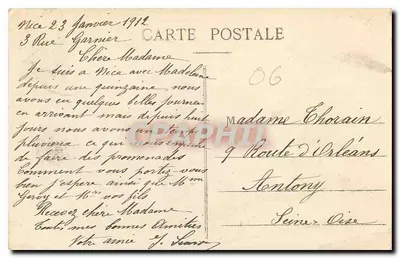 Nice 23 Janvier 1912
3 Rue Garnier
CARTE POSTALE
Chère Madame
Je suis à Nice avec Madeleine
depuis une quinzaine nous
avons eu quelques belles journées
en arrivant mais depuis huit
jours nous avons un temps
pluvieux ce qui nous
de faire des promenades
Comment vous portez-vous
bien j'espère ainsi que Mme
et Mrs vos fils
Recevez chère Madame
toutes mes bonnes Amitiés
Votre amie J.
06
Madame Thorain
9 Route d'Orléans
Antony
Seine-Oise